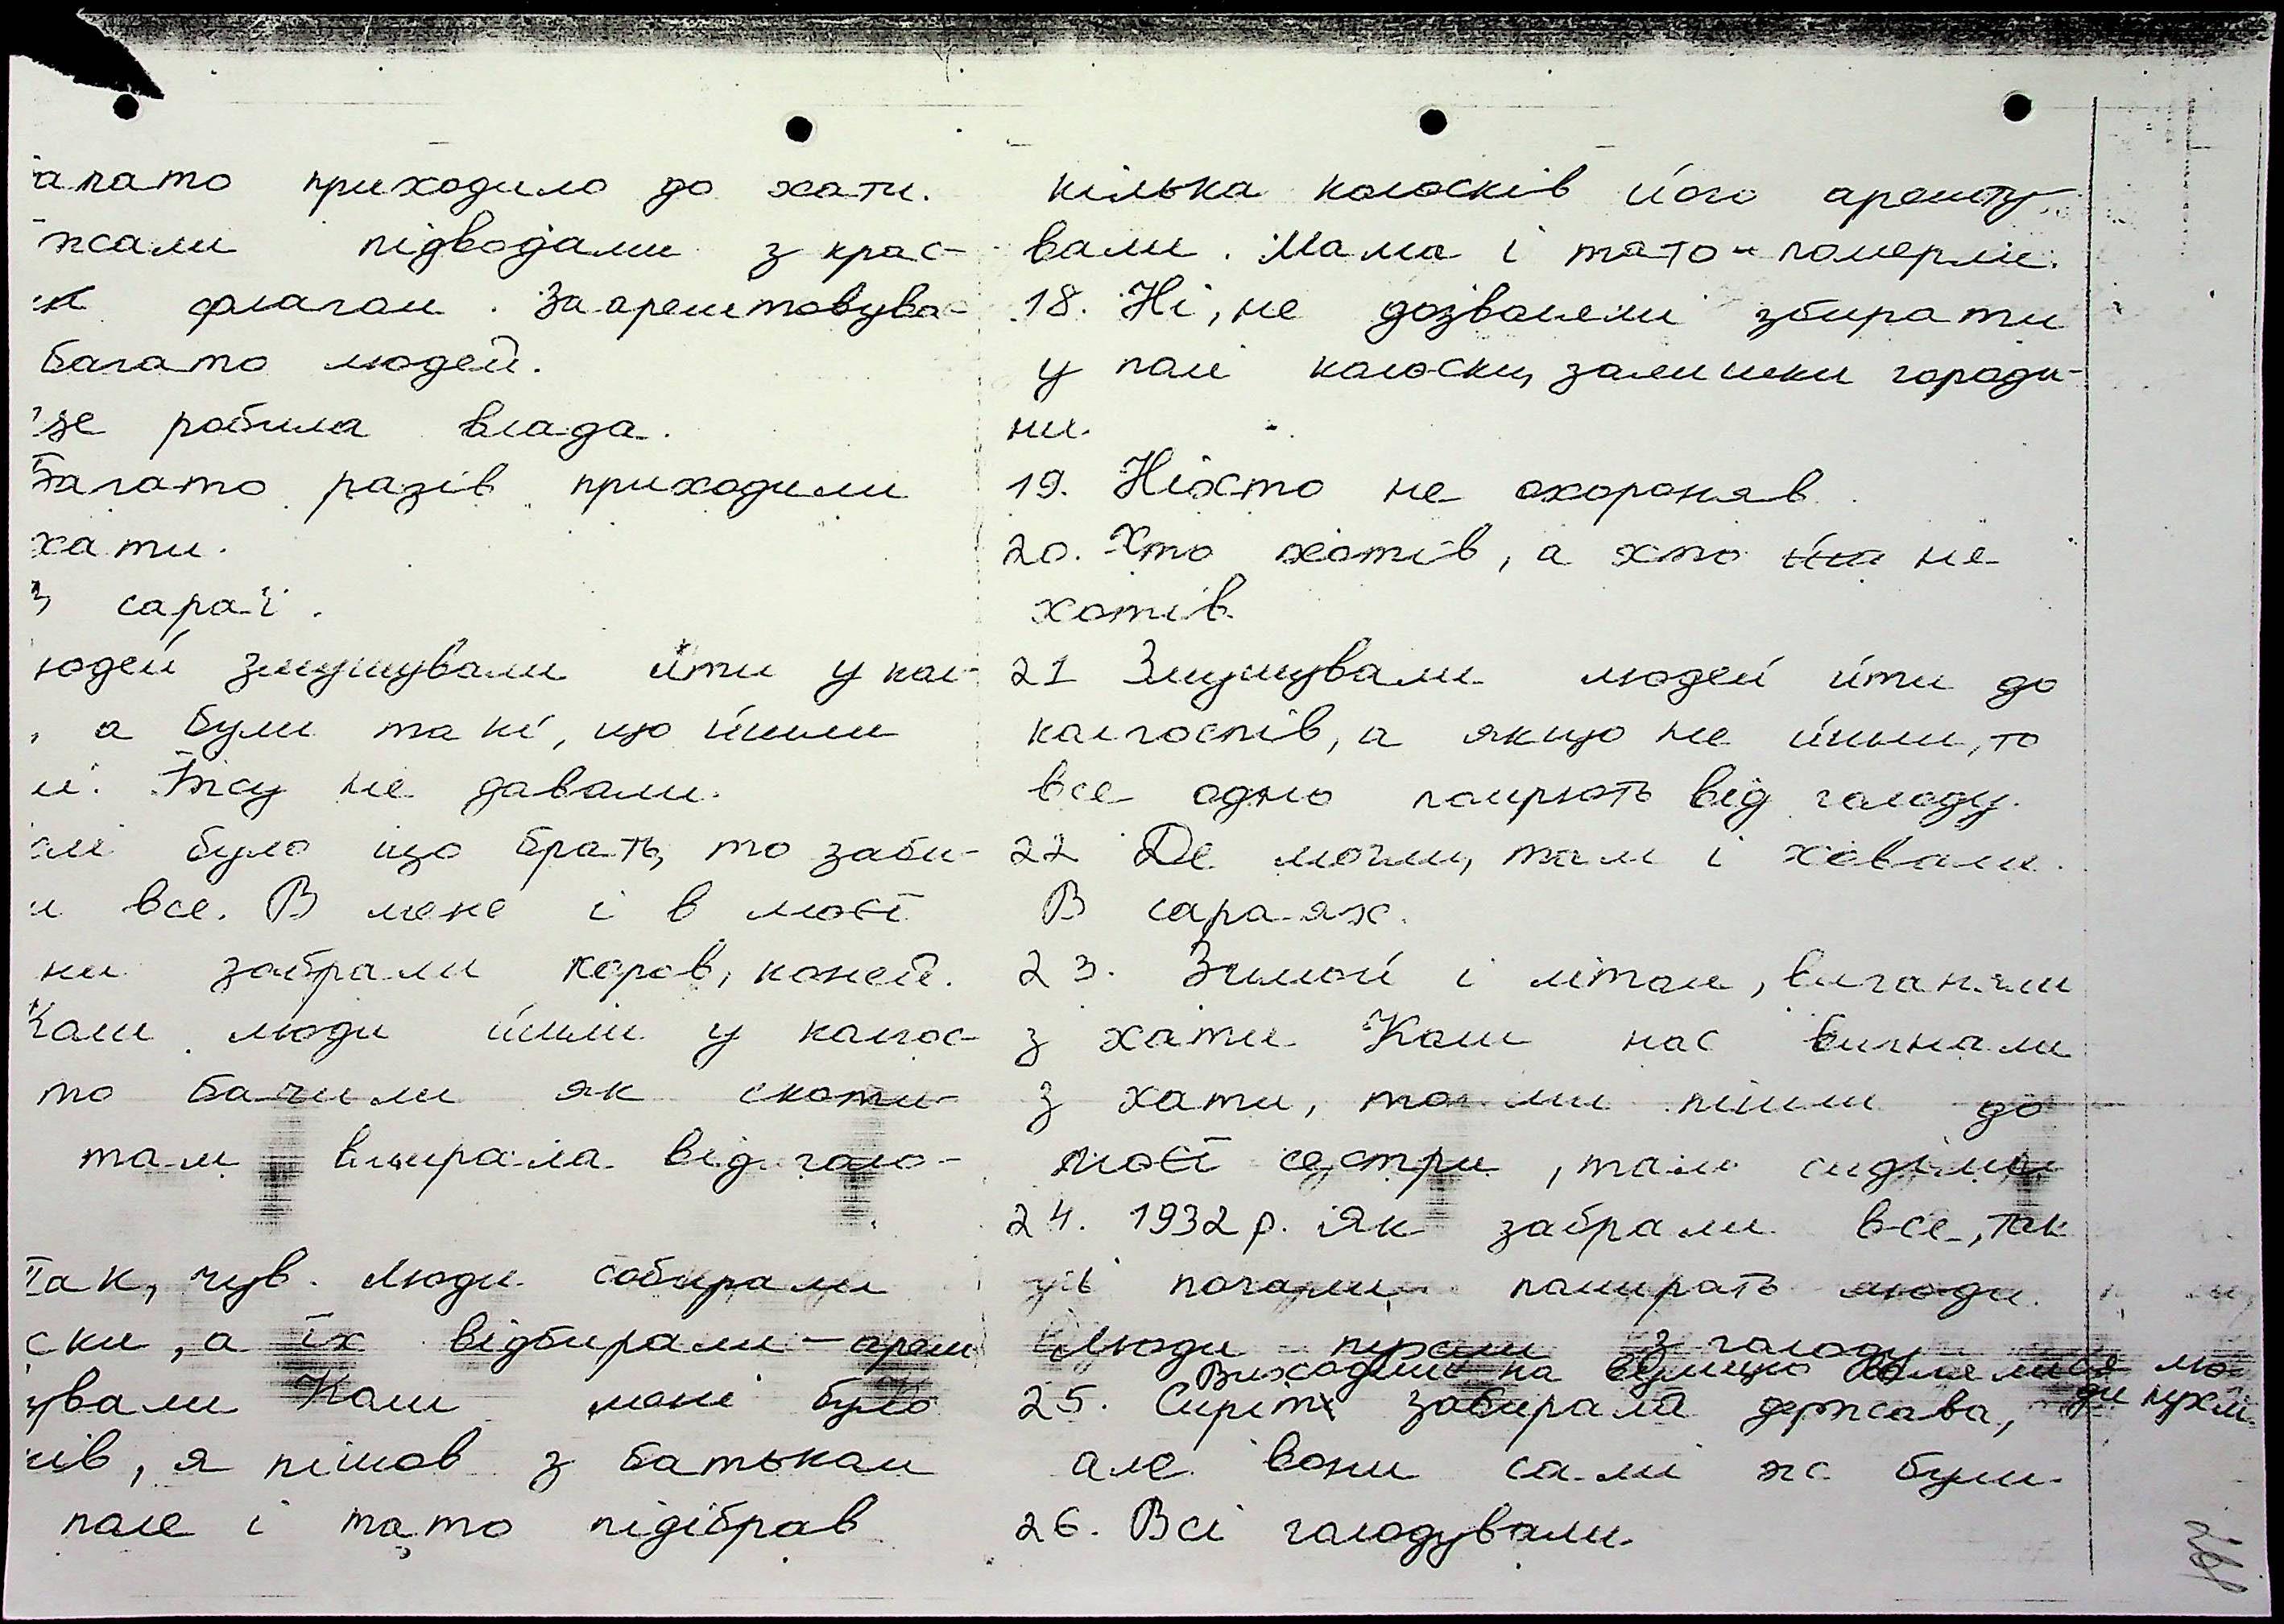 агато приходило до хати.
жали підводами з крас-
флагом. Заарештовува-
багато людей.
це робила влада.
Багато разів приходили
хати.
З сараї.
юдей змушували йти у кол-
, а були такі, що йшли
и. Їжу не давали.
було що брать, то заби-
и все. В мене і в моєї
ни забрали коров, коней.
Коли люди йшли у колгос-
то бачили як скоти-
там вмирала від голо-
Так, чув. Люди собирали
ски, а їх відбирали – ареш
ували Коли мені було
ків, я пішов з батьком
поле і тато підібрав
кілька колосків його арешту-
вали. Мама і тато - померли.
18. Ні, не дозволяли збирати
у полі колоски, залишки городи-
ни.
19. Ніхто не охороняв.
20. Хто хотів, а хто не
хотів.
21 Змушували людей йти до
колгоспів, а якщо не йшли, то
все одно помрють від голоду.
22 Де могли, там і ховали.
В сараях.
23. Зимой і літом, виганяли
з хати Коли нас вигнали
з хати, то ми пішли до
моєї сестри, там сиділи
24. 1932 р. Як забрали все, так
усі почали помирать люди.
Люди пухли з голоду
Виходили на вулицю валялися лю-
ди пухлі.
25. Сиріт забирала держава,
але вони самі не були.
26. Всі голодували.